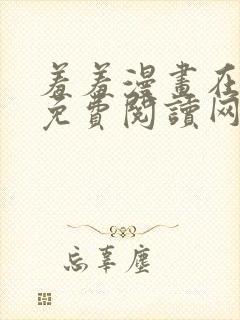 羞羞漫畫在
免費閱讀网
忘辜塵